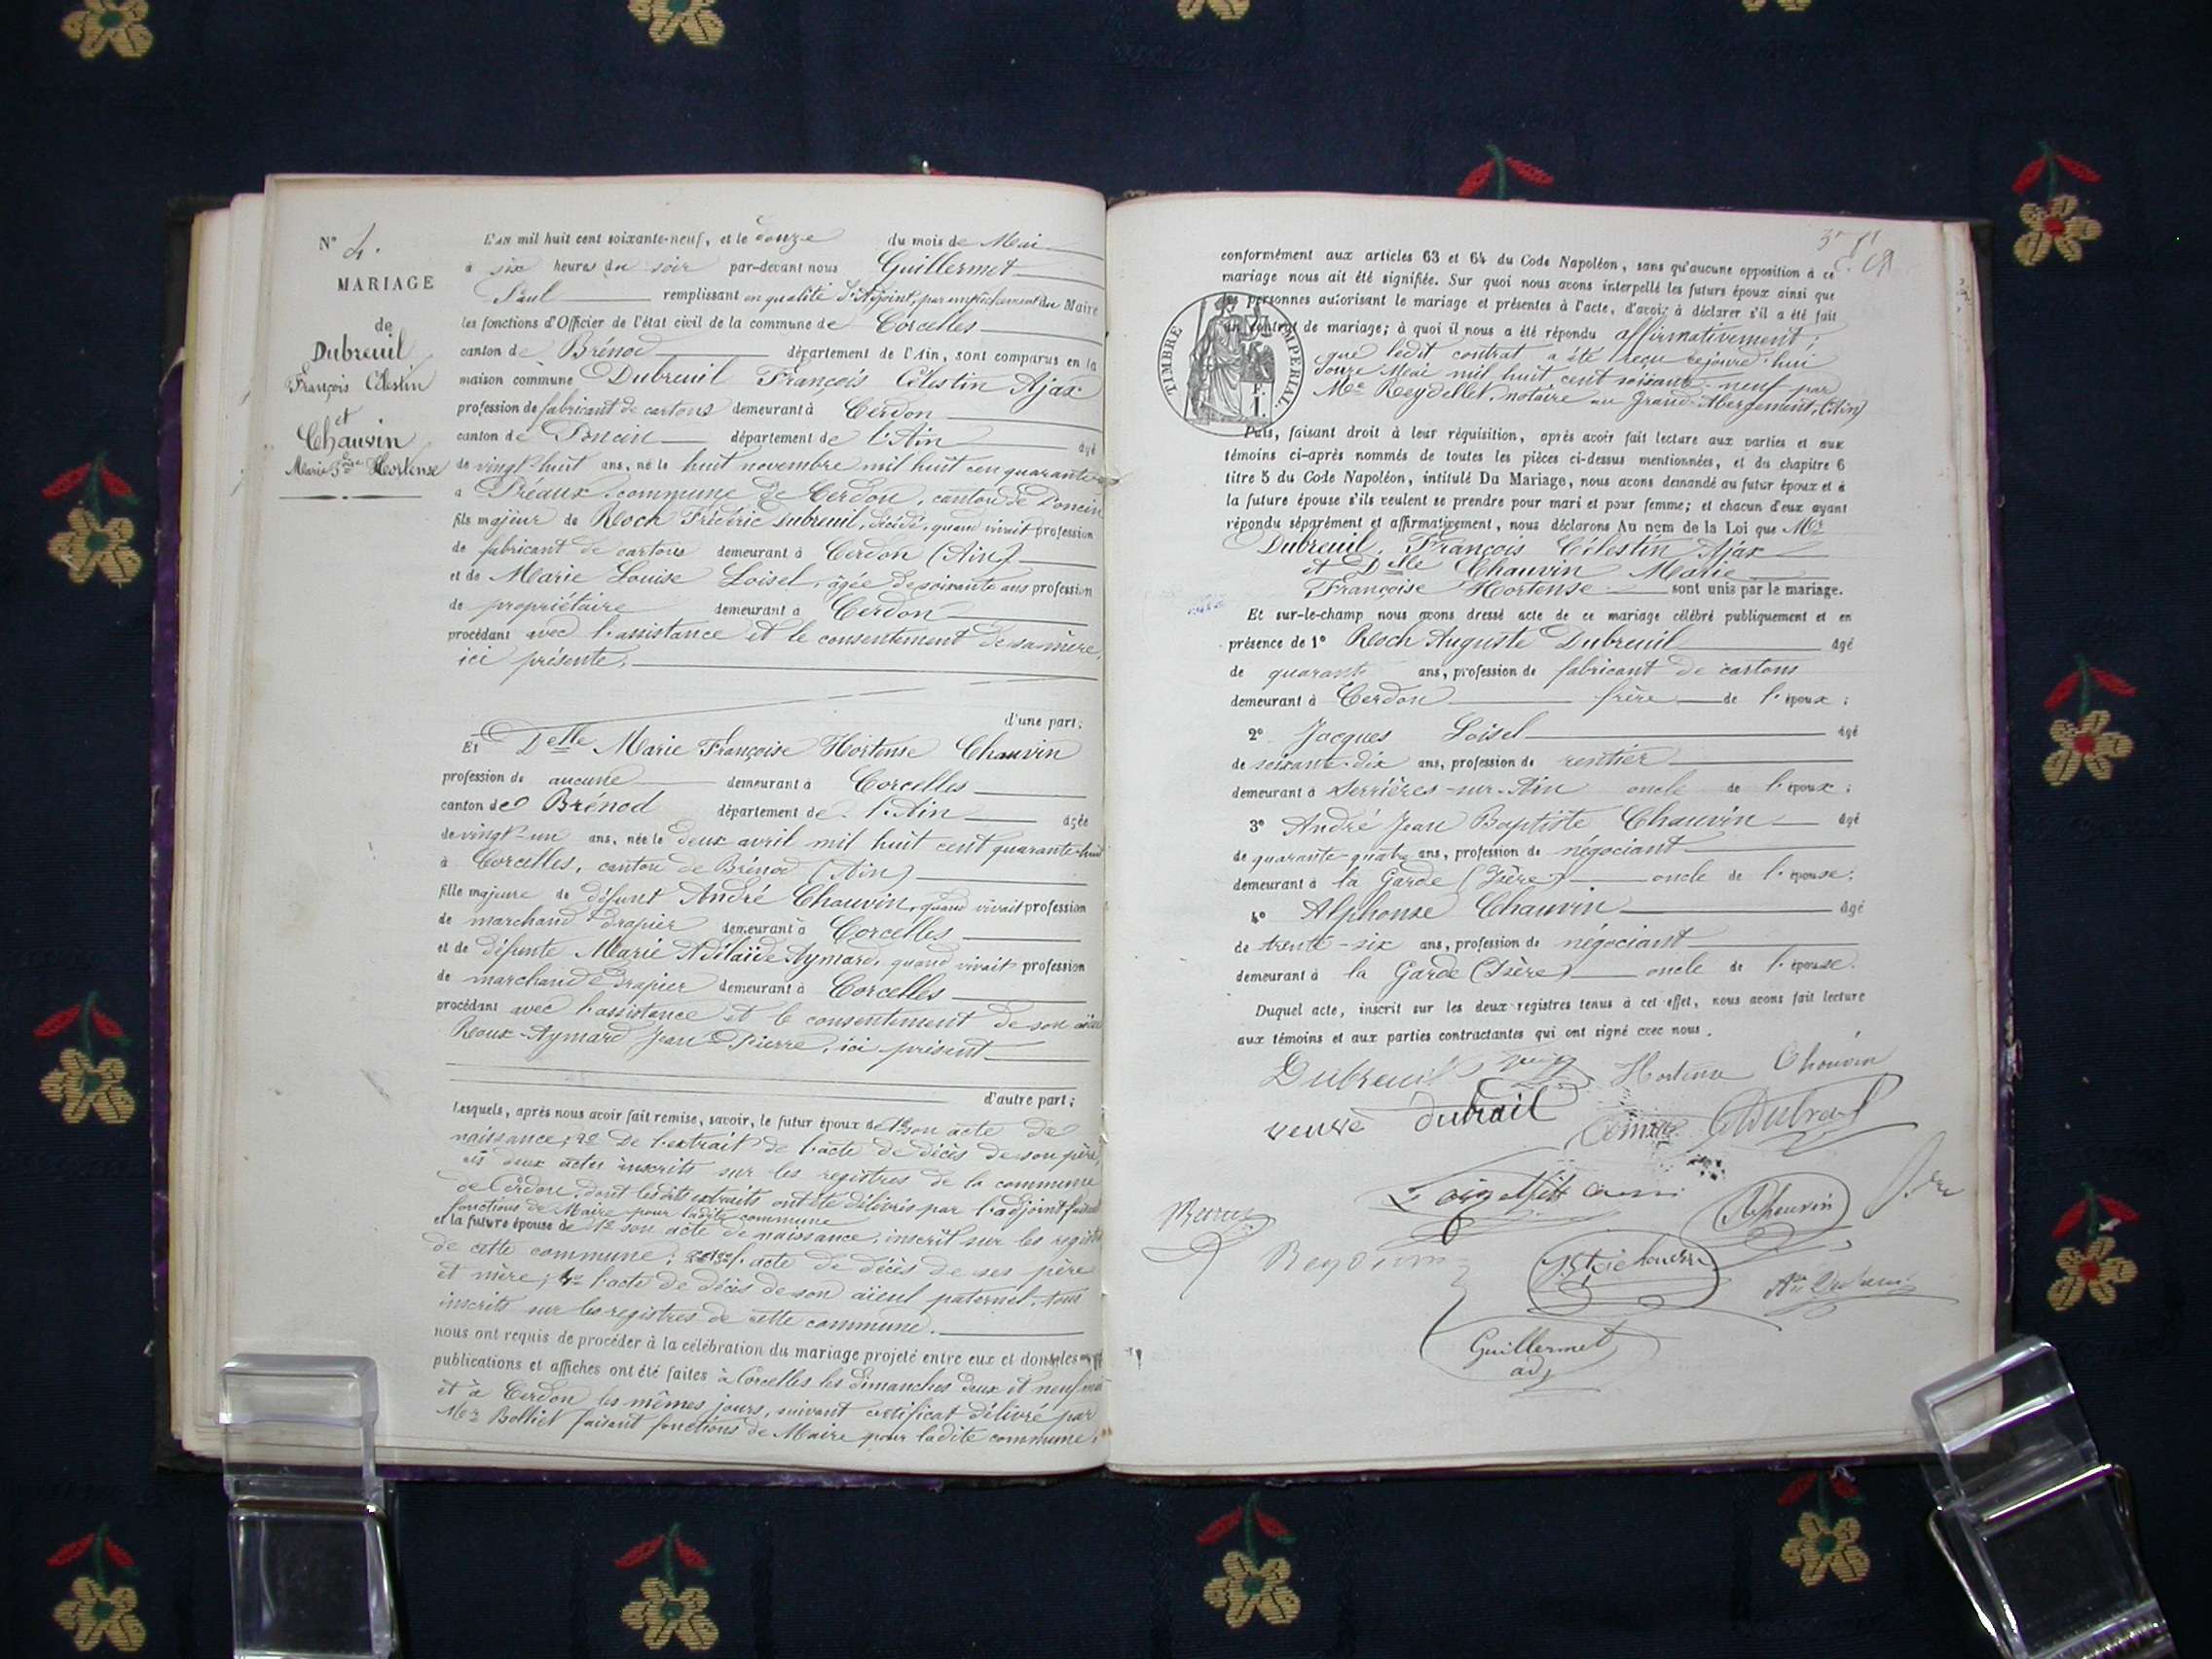 N° 4.
MARIAGE
de
Dubreuil
François Célestin
et
Chauvin
Marie Hortense
L'AN mil huit cent soixante-neuf, et le douze du mois de Mai
à six heures du soir par-devant nous Guillermet
Paul remplissant en qualité d'Adjoint, par empêchement du Maire
les fonctions d'Officier de l'état civil de la commune de Corcelles
canton de Brénod département de l'Ain, sont comparus en la
maison commune Dubreuil François Célestin Ajax
profession de fabricant de cartons demeurant à Cerdon
canton de Poncin département de l'Ain agé
de vingt-huit ans, né le huit novembre mil huit cent quarante
à Préaux, commune de Cerdon, canton de Poncin
fils majeur de Roch Frédéric Dubreuil, décédé, quand vivait profession
de fabricant de cartons demeurant à Cerdon (Ain)
et de Marie Louise Loisel, âgée de soixante ans profession
de propriétaire demeurant à Cerdon
procédant avec l'assistance et le consentement de sa mère,
ici présente.
d'une part;
Et Delle Marie Françoise Hortense Chauvin
profession de aucune demeurant à Corcelles
canton de Brénod département de l'Ain agée
de vingt-un ans, née le deux avril mil huit cent quarante-huit
à Corcelles, canton de Brénod (Ain)
fille majeure de défunt André Chauvin, quand vivait profession
de marchand drapier demeurant à Corcelles
et de défunte Marie Adélaïde Aymard, quand vivait profession
de marchand drapier demeurant à Corcelles
procédant avec l'assistance et le consentement de son aïeul
Roux-Aymard Jean-Pierre, ici présent
d'autre part;
Lesquels, après nous avoir fait remise, savoir, le futur époux de 1° son acte de
naissance; 2° de l'extrait de l'acte de décès de son père,
ces deux actes inscrits sur les registres de la commune
de Cerdon, dont lesdits extraits ont été délivrés par l'adjoint faisant
fonctions de Maire pour ladite commune
et la future épouse de 1° son acte de naissance, inscrit sur les registres
de cette commune; 2° et 3° l'acte de décès de ses père
et mère; 4° l'acte de décès de son aïeul paternel, tous
inscrits sur les registres de cette commune.
nous ont requis de procéder à la célébration du mariage projeté entre eux et dont les
publications et affiches ont été faites à Corcelles les dimanches deux et neuf mai
et à Cerdon les mêmes jours, suivant certificat délivré par
Mr Bolliet faisant fonctions de Maire pour ladite commune.
conformément aux articles 63 et 64 du Code Napoléon, sans qu'aucune opposition à ce
mariage nous ait été signifiée. Sur quoi nous avons interpellé les futurs époux ainsi que
les personnes autorisant le mariage et présentes à l'acte, d'avoir à déclarer s'il a été fait
un contrat de mariage; à quoi il nous a été répondu affirmativement;
que ledit contrat a été reçu cejourd'hui
douze Mai mil huit cent soixante-neuf par
Me Reydellet, notaire au Grand-Abergement, (Ain)
TIMBRE IMPERIAL
Puis, faisant droit à leur réquisition, après avoir fait lecture aux parties et aux
témoins ci-après nommés de toutes les pièces ci-dessus mentionnées, et du chapitre 6
titre 5 du Code Napoléon, intitulé Du Mariage, nous avons demandé au futur époux et à
la future épouse s'ils veulent se prendre pour mari et pour femme; et chacun d'eux ayant
répondu séparément et affirmativement, nous déclarons Au nom de la Loi que Mr
Dubreuil, François Célestin Ajax
et Delle Chauvin Marie
Françoise Hortense sont unis par le mariage.
Et sur-le-champ nous avons dressé acte de ce mariage célébré publiquement et en
présence de 1° Roch Auguste Dubreuil agé
de quarante ans, profession de fabricant de cartons
demeurant à Cerdon frère de l'époux;
2° Jacques Loisel agé
de soixante-dix ans, profession de rentier
demeurant à Serrières-sur-Ain oncle de l'époux;
3° André Jean Baptiste Chauvin agé
de quarante-quatre ans, profession de négociant
demeurant à la Garde (Isère) oncle de l'épouse;
4° Alphonse Chauvin agé
de trente-six ans, profession de négociant
demeurant à la Garde (Isère) oncle de l'épouse.
Duquel acte, inscrit sur les deux registres tenus à cet effet, nous avons fait lecture
aux témoins et aux parties contractantes qui ont signé avec nous.
Dubreuil Hortense Chauvin
veuve dubrail
Chauvin
Guillermet
adj